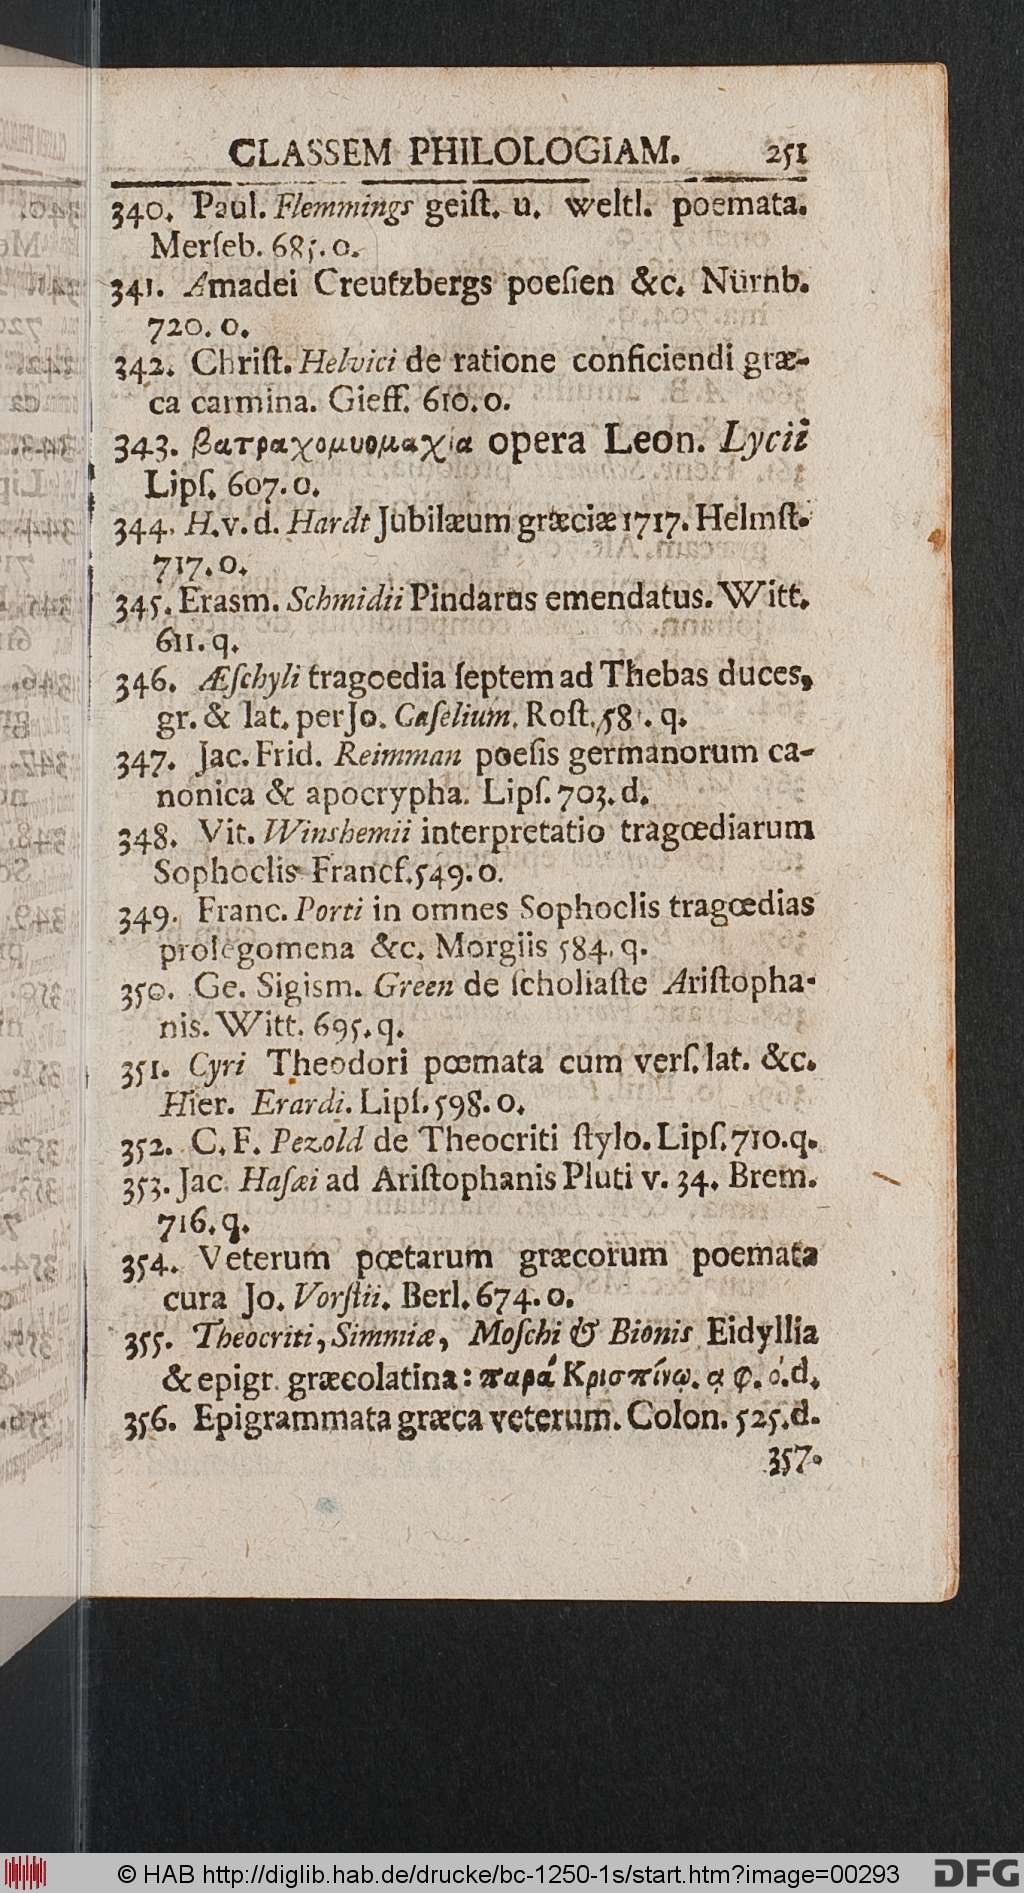 CLASSEM PHILOLOGIAM. 251
340. Paul. Flemmings geiſt. u. weltl. poemata.
Merſeb. 685. o.
341. Amadei Creutzbergs poeſien &c. Nürnb.
720. o.
342. Chriſt. Helvici de ratione conficiendi græ-
ca carmina. Gieff. 610. o.
343. βατραχομυομαχία opera Leon. Lycii
Lipſ. 607. o.
344. H. v. d. Hardt Jubilæum græciæ 1717. Helmſt.
717. o.
345. Erasm. Schmidii Pindarus emendatus. Witt.
611. q.
346. Æſchyli tragoedia ſeptem ad Thebas duces,
gr. & lat. per Jo. Caſelium. Roſt. q.
347. Jac. Frid. Reimman poeſis germanorum ca-
nonica & apocrypha. Lipſ. 703. d.
348. Vit. Winshemii interpretatio tragœdiarum
Sophoclis Francf. 549. o.
349. Franc. Porti in omnes Sophoclis tragœdias
prolegomena &c. Morgiis 584. q.
350. Ge. Sigism. Green de ſcholiaſte Ariſtopha-
nis. Witt. 695. q.
351. Cyri Theodori pœmata cum verſ. lat. &c.
Hier. Erardi. Lipſ. 598. o.
352. C. F. Pezold de Theocriti ſtylo. Lipſ. 710. q.
353. Jac. Haſæi ad Ariſtophanis Pluti v. 34. Brem.
716. q.
354. Veterum pœtarum græcorum poemata
cura Jo. Vorſtii. Berl. 674. o.
355. Theocriti, Simmiæ, Moſchi & Bionis Eidyllia
& epigr. græcolatina: παρά Κρισπίνῳ. α φ. ό. d.
356. Epigrammata græca veterum. Colon. 525. d.
357.
© HAB http://diglib.hab.de/drucke/bc-1250-1s/start.htm?image=00293
DFG